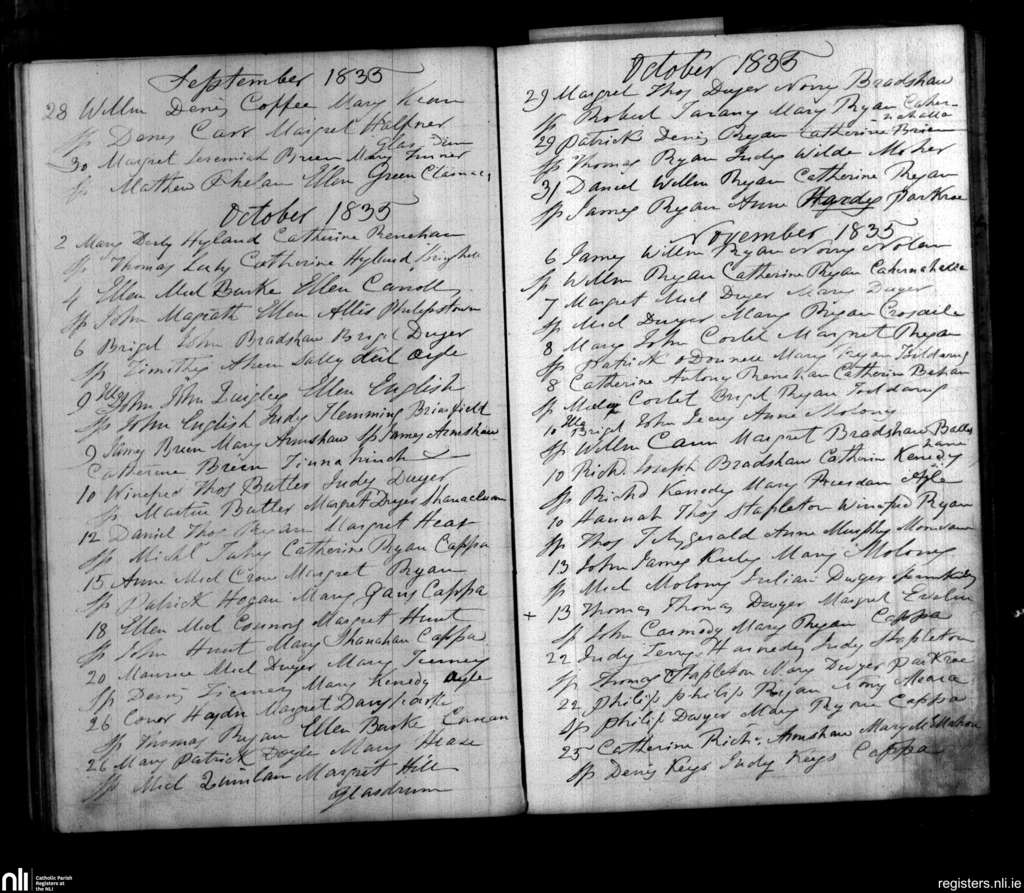 September 1835
28 Willm Denis Coffee Mary Kean
Sp Denis Carr Margret Halfner
Glas Drum
30 Margret Jeremiah Brien Mary
Sp Mathew Phelan Ellen Green
October 1835
2 Mary Hyland Catherine Renehan
Sp Thomas Catherine Hyland
4 Ellen Micl Burke Ellen Carroll
Sp John Magrath Ellen Allis Philipstown
6 Briget John Bradshaw Briget Dwyer
Sp Timothy Ahern Sally Oyle
9 John John Quigley Ellen English
Sp John English Judy Flemming
9 James Brien Mary Armshaw Sp James Armshaw
Catherine Brien Tinnahinch
10 Winefred Thos Butler Judy Dwyer
Sp Martin Butler Margret Dwyer Shanacloon
12 Daniel Thos Ryan Margret Heas
Sp Michl Fahy Catherine Ryan Cappa
15 Anne Micl Crow Margret Ryan
Sp Patrick Hogan Mary Cappa
18 Ellen Micl Connors Margret Hunt
Sp John Hunt Mary Shanahan Cappa
20 Maurice Micl Dwyer Mary Tierney
Sp Denis Tierney Mary Kenedy Oyle
26 Conor Haydn Margret
Sp Thomas Ryan Ellen Burke
26 Mary Patrick Doyle Mary Hease
Sp Micl Quinlan Margret Hill
Glasdrum
October 1835
29 Margret Thos Dwyer Nory Bradshaw
Sp Robert Mary Ryan Caher-
nahalla
29 Patrick Denis Ryan Catherine Brien
Sp Thomas Ryan Judy Wilde Moher
31 Daniel Willm Ryan Catherine Ryan
Sp James Ryan Anne Hardy ParKroe
November 1835
6 James Willm Ryan Nory Nolan
Sp Willm Ryan Catherine Ryan Cahernahalla
7 Margret Micl Dwyer Mary Dwyer
Sp Micl Dwyer Mary Ryan
8 Mary John Corbet Margret Ryan
Sp Patrick oDonnell Mary Ryan
8 Catherine Antony Renehan Catherine
Sp Corbet Briget Ryan
10 Briget John Anne Molony
Sp Willm Cann Margret Bradshaw
10 Richd Joseph Bradshaw Catherine Kenedy
Sp Richd Kenedy Mary Oyle
10 Hannah Thos Stapleton Winefred Ryan
Sp Thos Fitzgerald Anne Murphy
13 John James Kirby Mary Molony
Sp Micl Molony Julian Dwyer
+ 13 Thomas Thomas Dwyer Margret
Sp John Carmody Mary Ryan Cappa
22 Judy Jerry Judy Stapleton
Sp Thomas Stapleton Mary Dwyer ParKroe
22 Philip Philip Ryan Nory Meara
Sp Philip Dwyer Mary Cappa
25 Catherine Richd Armshaw Mary
Sp Denis Keys Judy Keys Cappa
nli
Catholic Parish
Registers at
the NLI
registers.nli.ie